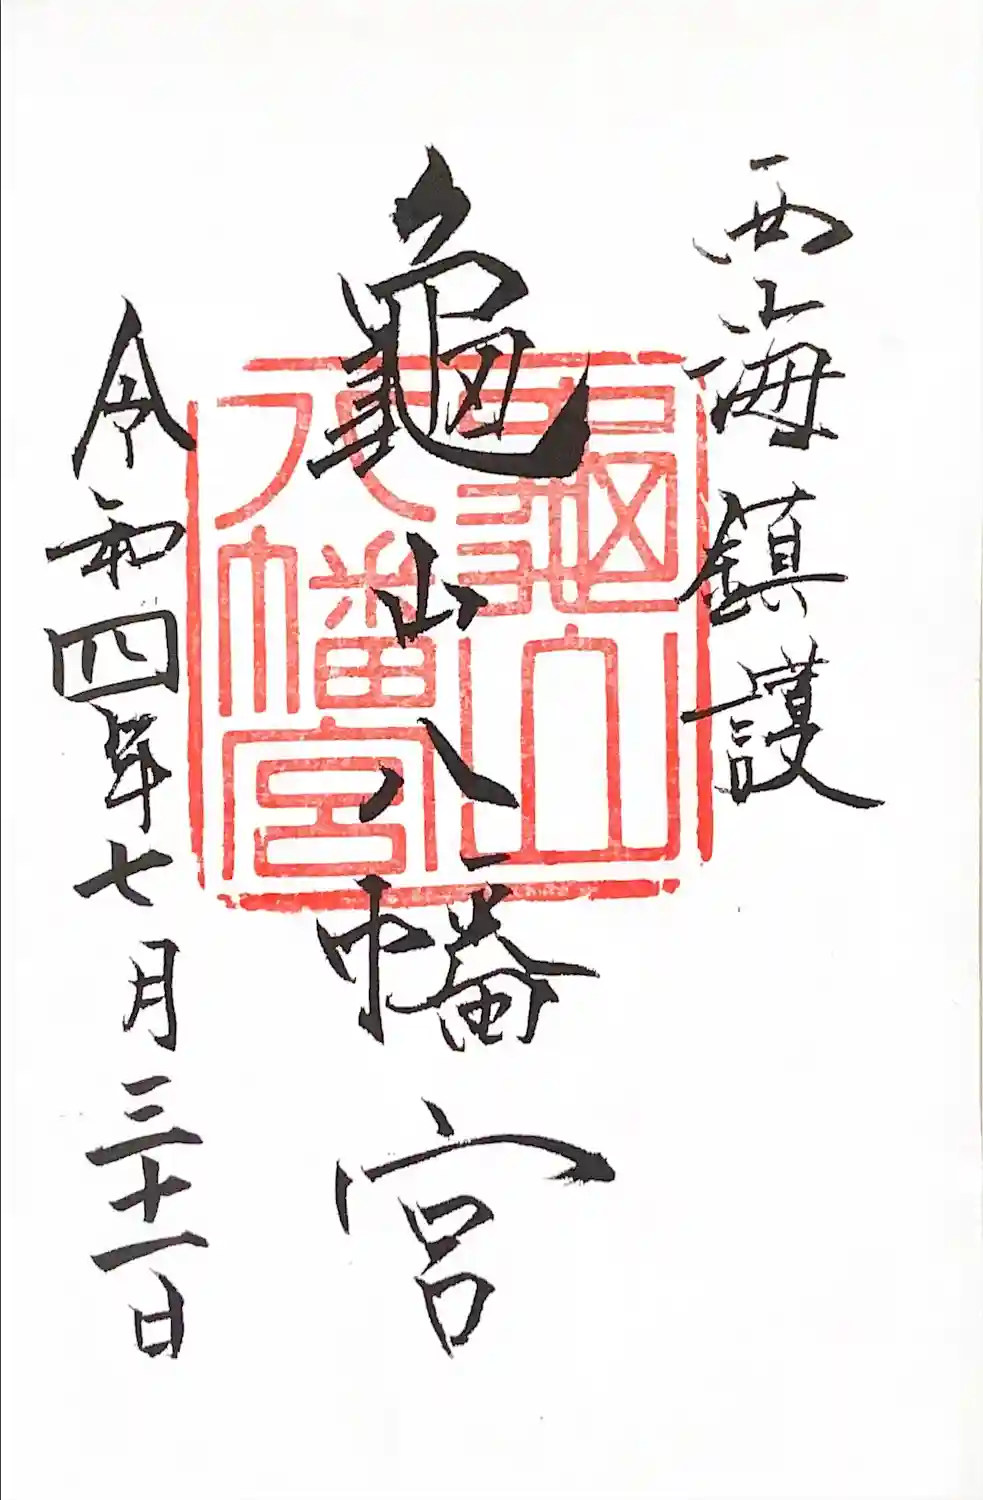 西海鎮護
龜山八幡宮
龜山
八幡宮
令和四年七月三十一日